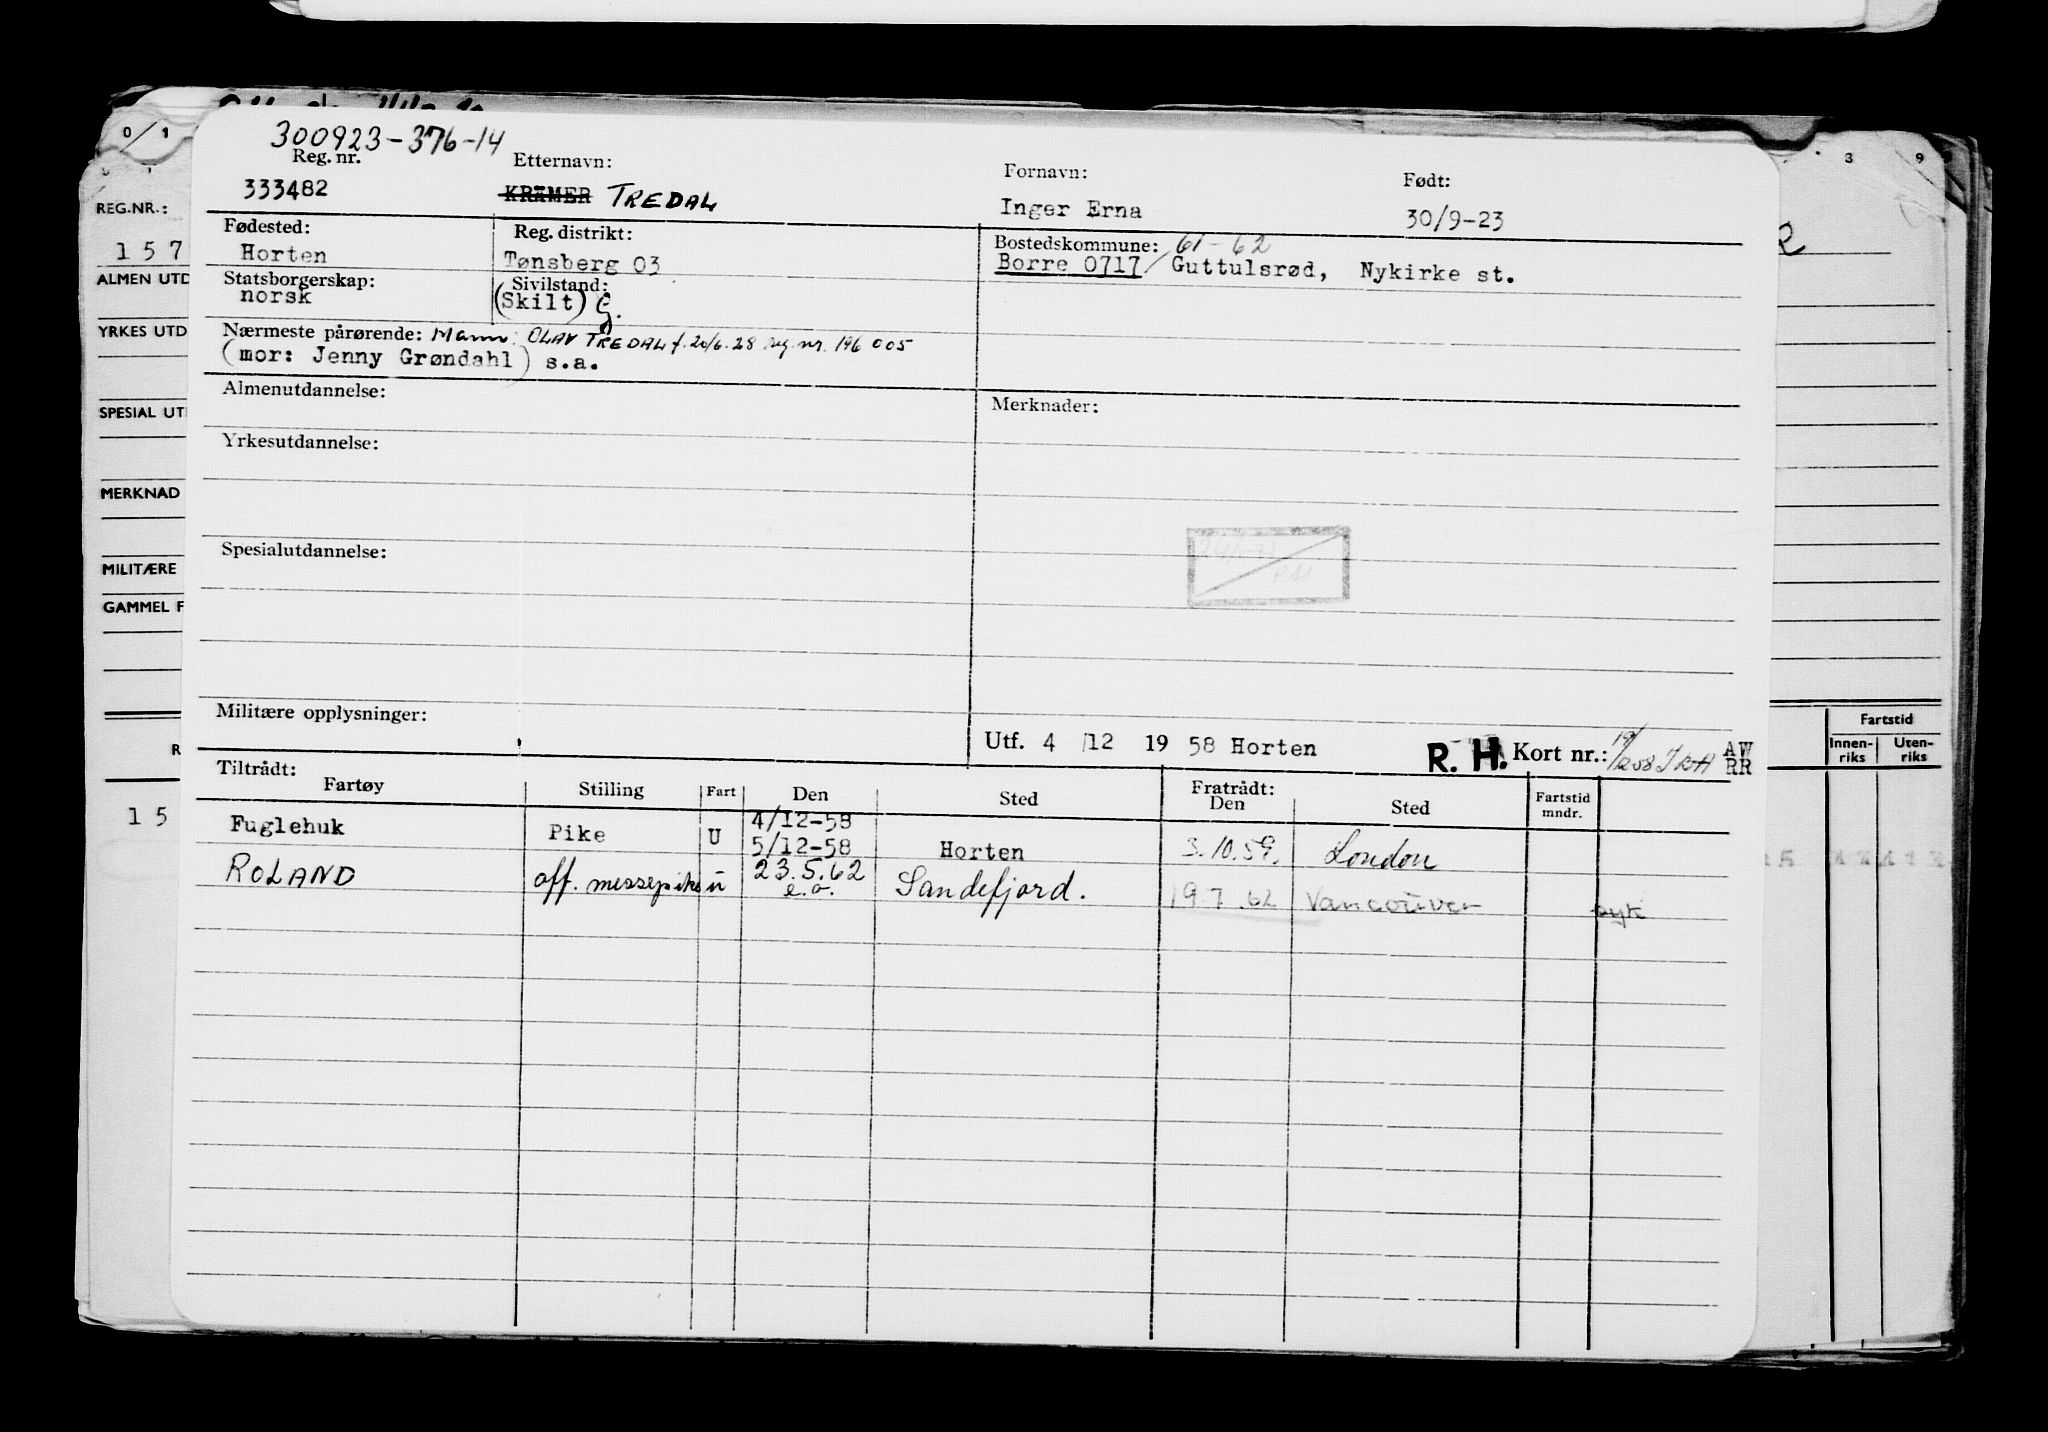 300923-376-14
Reg. nr. Etternavn: Fornavn: Født:
333482 KRAMER TREDAL Inger Erna 30/9-23
Fødested: Reg. distrikt: Bostedskommune: 61-62
Horten Tønsberg 03 Borre 0717/ Guttulsrød, Nykirke st.
Statsborgerskap: Sivilstand:
norsk (Skilt) G.
Nærmeste pårørende: Mann: OLAV TREDAL f. 20/6.28 reg. nr. 196 005
(mor: Jenny Grøndahl) s.a.
Almenutdannelse: Merknader:
Yrkesutdannelse:
Spesialutdannelse:
Militære opplysninger:
Utf. 4 /12 19 58 Horten R. H. Kort nr.: AW
RR
Tiltrådt: Fratrådt:
Fartøy Stilling Fart Den Sted Den Sted Fartstid mndr.
Fuglehuk Pike U 4/12-58
5/12-58 Horten 3.10.59. London
ROLAND off. messepike u 23.5.62 e.o. Sandefjord. 19.7.62 Vancouver syk
REG.NR.:
1 5 7
ALMEN UTD
YRKES UTD
SPESIAL UT
MERKNAD
MILITÆRE
GAMMEL F
R
1 5
0/1
3 9
Fartstid
Innen-riks Uten-riks